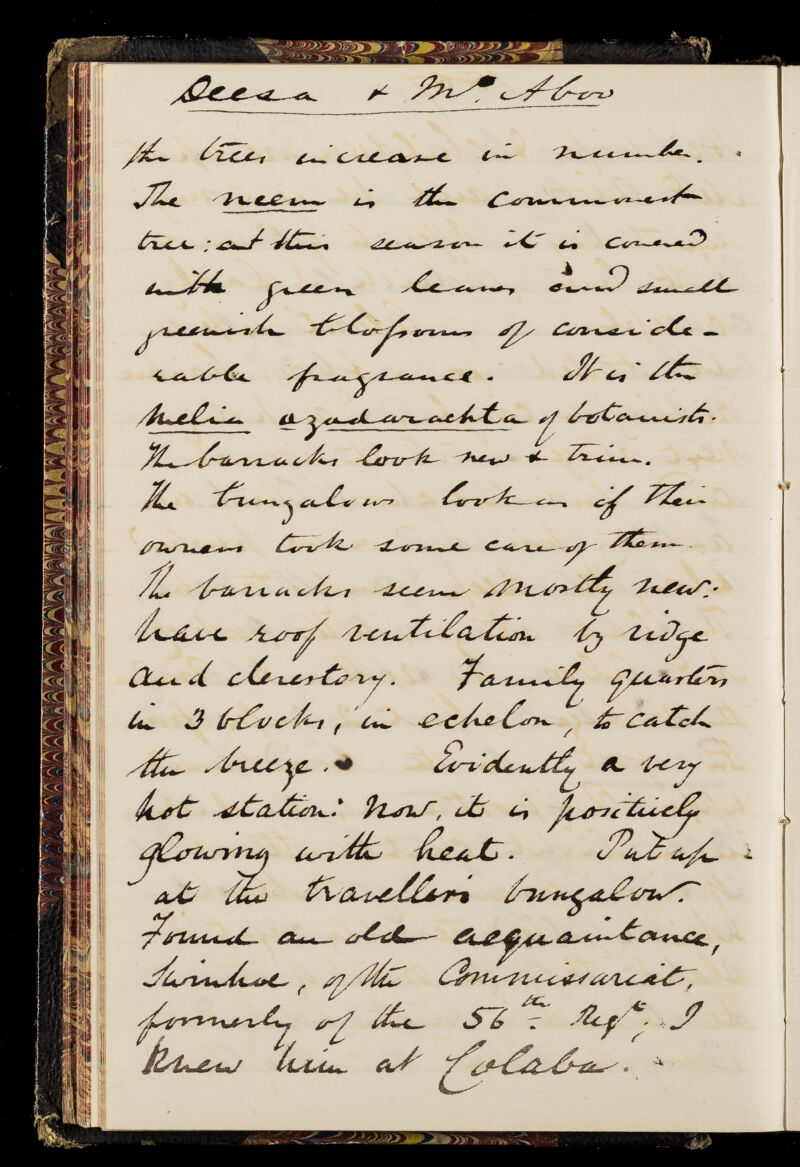 Deesa & Mt. Aboo
the trees increase in number.
The neem is the commonest
tree: at this season it is covered
with green leaves and small
greenish blossoms of conside-
rable fragrance. It is the
Melia azadarachta of botanists.
The barracks look new & trim.
The bungalows look as if their
owners took some care of them.
The barracks seem mostly new:
have roof ventilation by ridge
and clerestory. Family quarters
in 3 blocks, in echelon, to catch
the breeze. Evidently a very
hot station: now, it is positively
glowing with heat. Put up
at the travellers bungalow.
Found an old acquaintance,
Swinhoe, of the Commissariat,
formerly of the 56th Regt; I
knew him at Colaba.